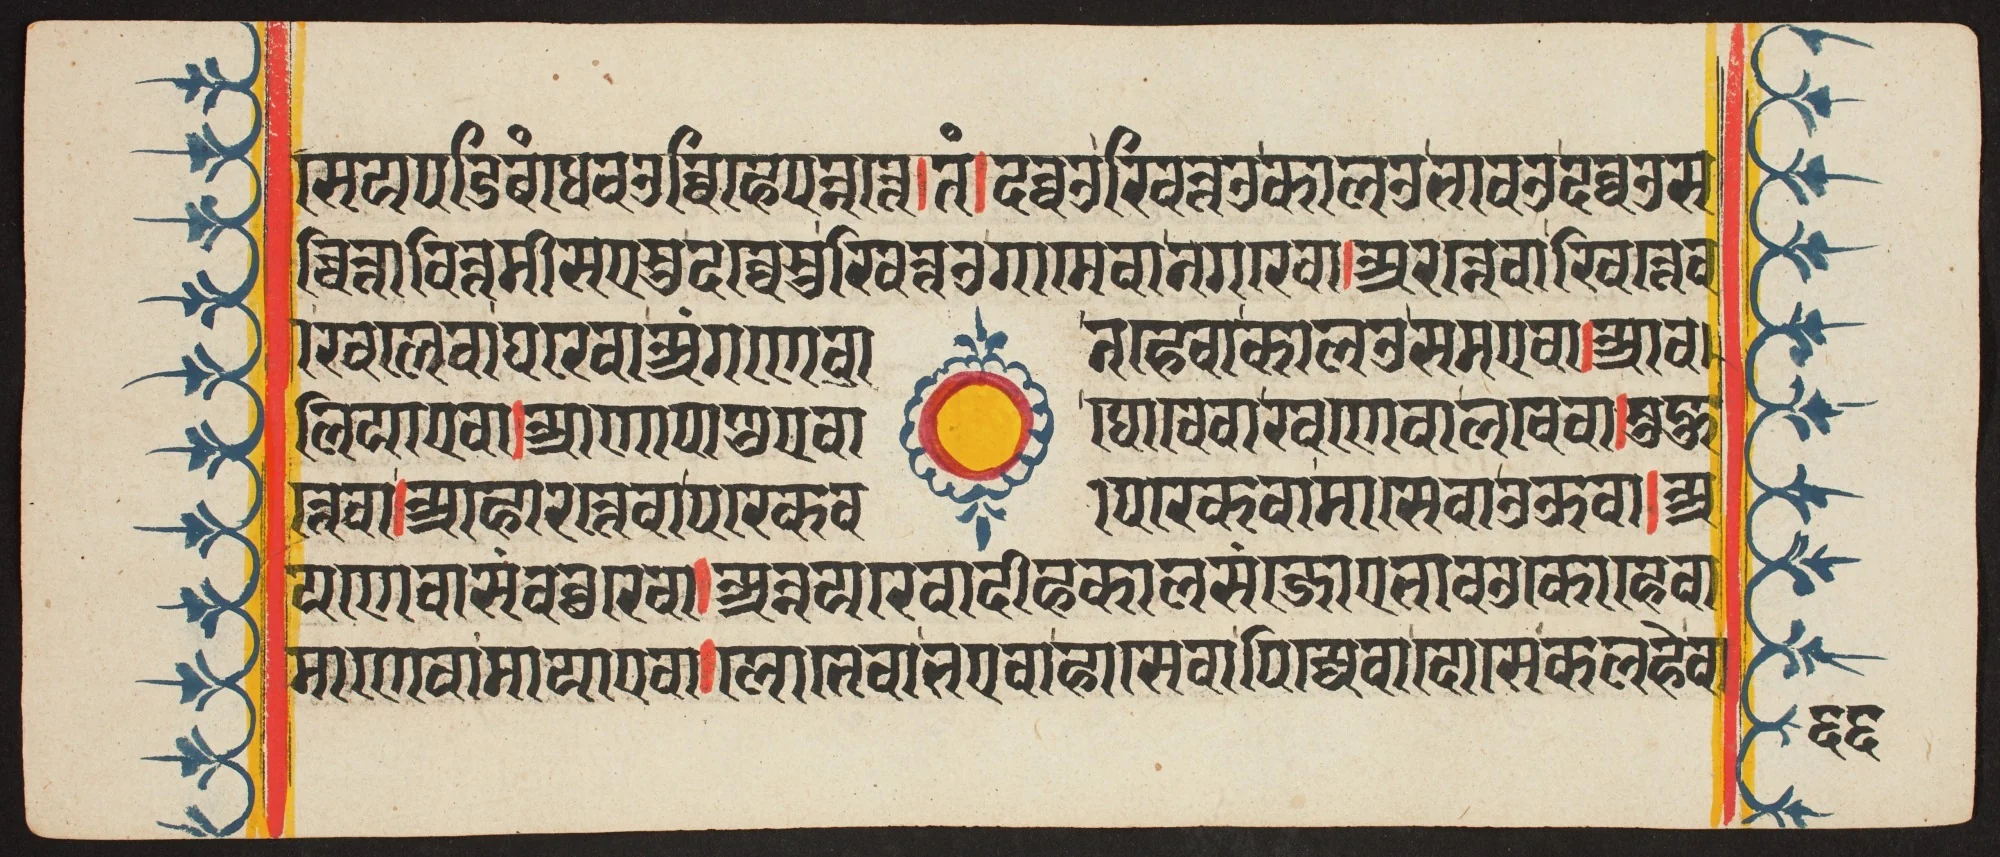 सेयपडिबंधेचउव्विहेपन्नत्ते।तं।दव्वउखित्तउकालउभावउदव्वउस
च्चित्ताचित्तमीसएसुदव्वेसुखित्तउगामेवानगरेवा।अरन्नेवाखित्तेव
ाखलेवाघरेवाअंगणेवा नहेवाकालउसमएवा।आव
लियाएवा।आणापाणुएवा थोवेवाखणेवालवेवा।मुहु
त्तेवा।आहोरत्तेवापरकेव परकेवामासेवाउऊवा।अ
यणेवासंवच्छरेवा।अन्नयरेवादीहकालसंजोएभावउकोहेवा
माणेवामायाएवा।लोभेवाभएवाहासेवापिज्जेवादोसेकलहेवा
६६